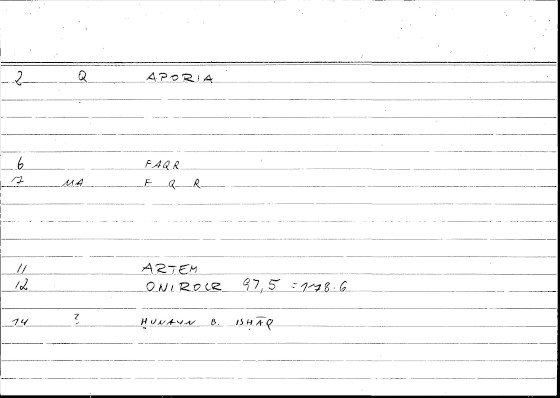 2 Q APORIA
6 FAQR
7 MA F Q R
11 ARTEM
12 ONIROCR 97,5 = 178.6
14 ? ḤUNAYN B. ISḤĀQ